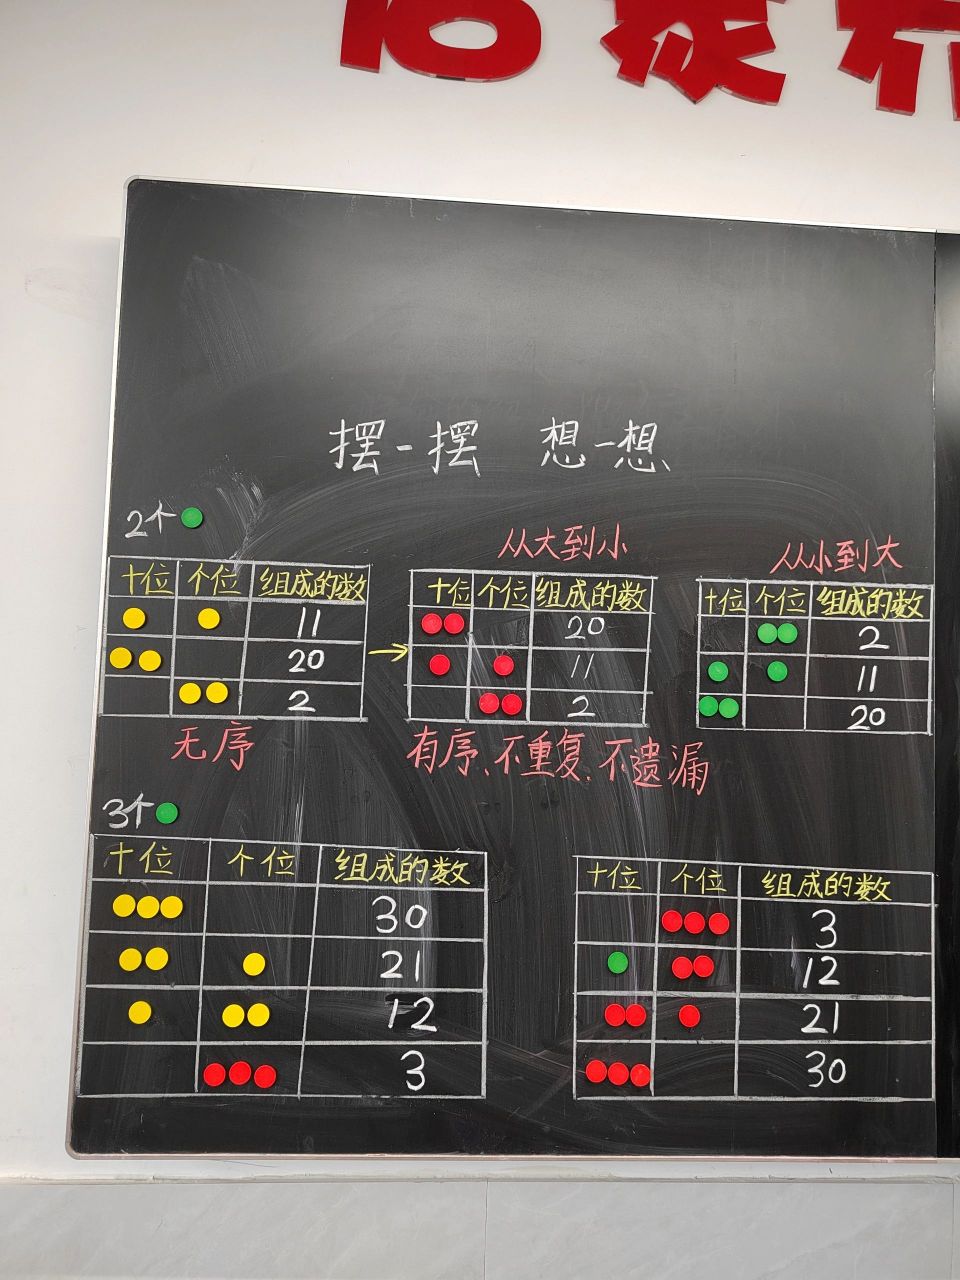 摆一摆 想一想
2个
十位 个位 组成的数
11
20
2
无序
从大到小
十位 个位 组成的数
20
11
2
有序、不重复、不遗漏
从小到大
十位 个位 组成的数
2
11
20
3个
十位 个位 组成的数
30
21
12
3
十位 个位 组成的数
3
12
21
30